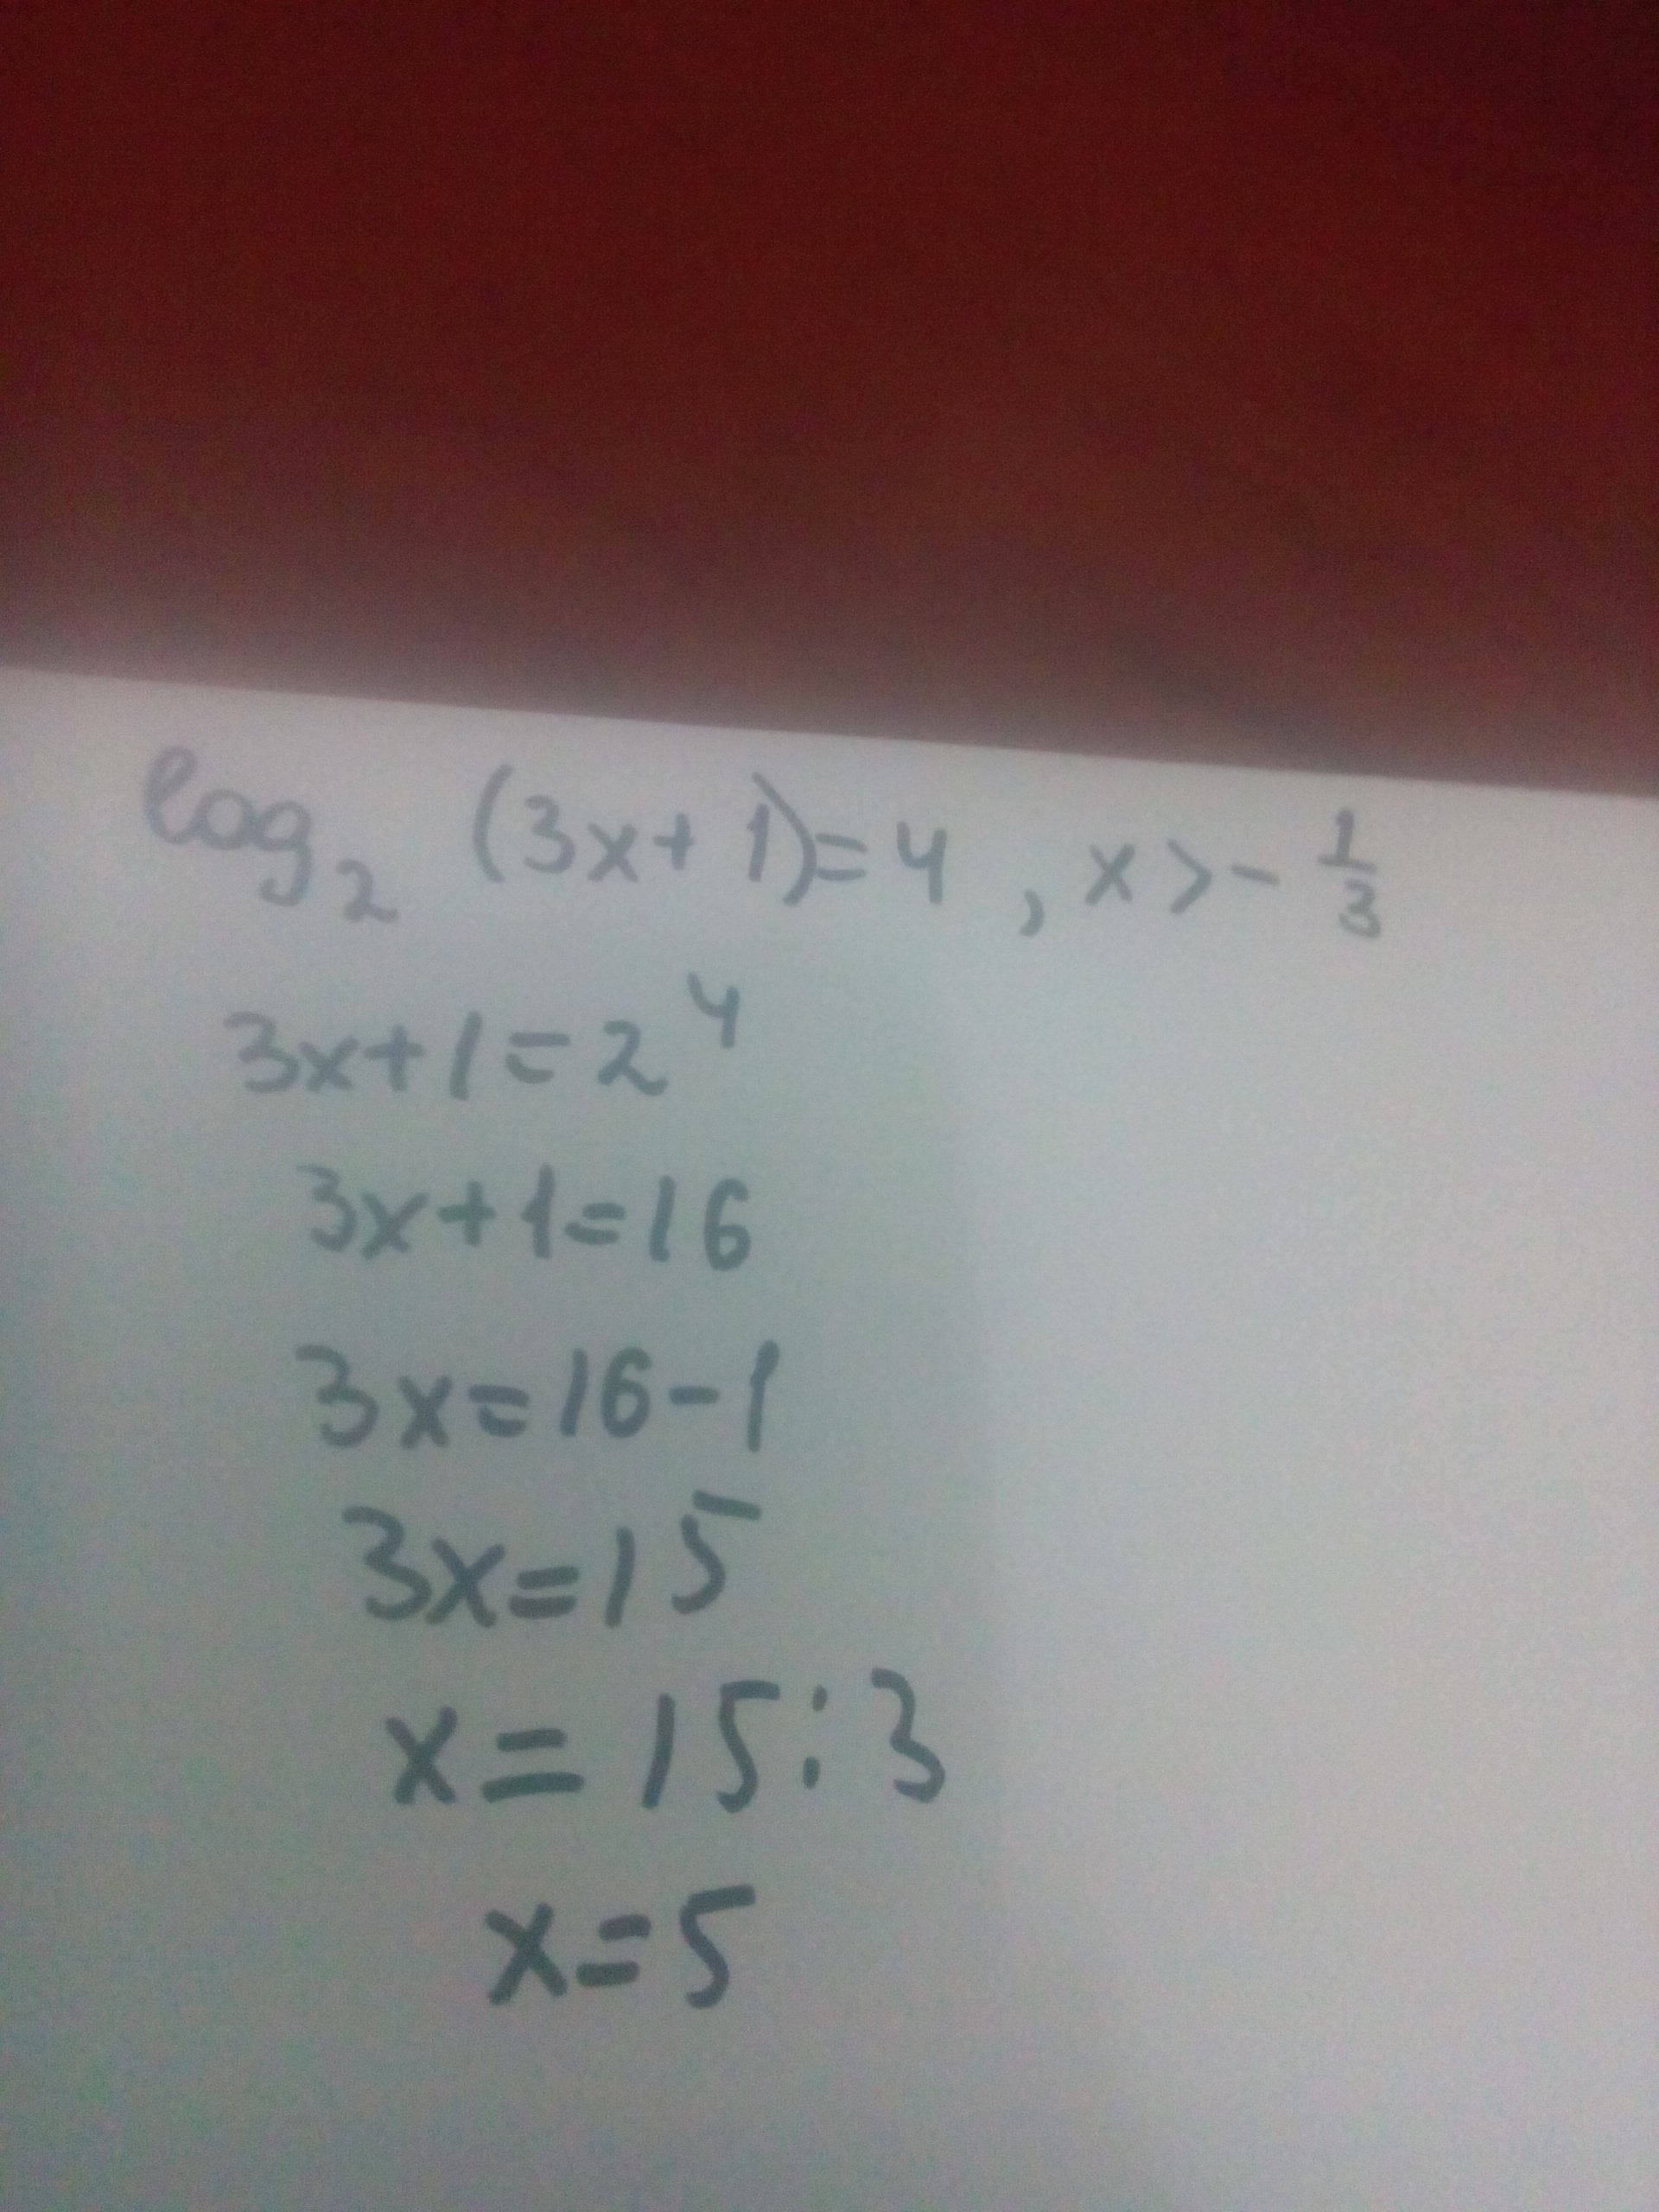 log₂ (3x+1)=4 , x>-1/3
3x+1=2⁴
3x+1=16
3x=16-1
3x=15
x=15:3
x=5